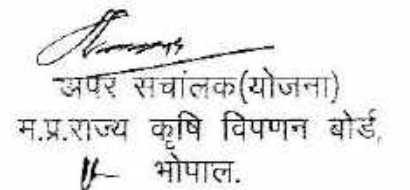 अपर सचांलक(योजना)
म.प्र.राज्य कृषि विपणन बोर्ड,
भोपाल.